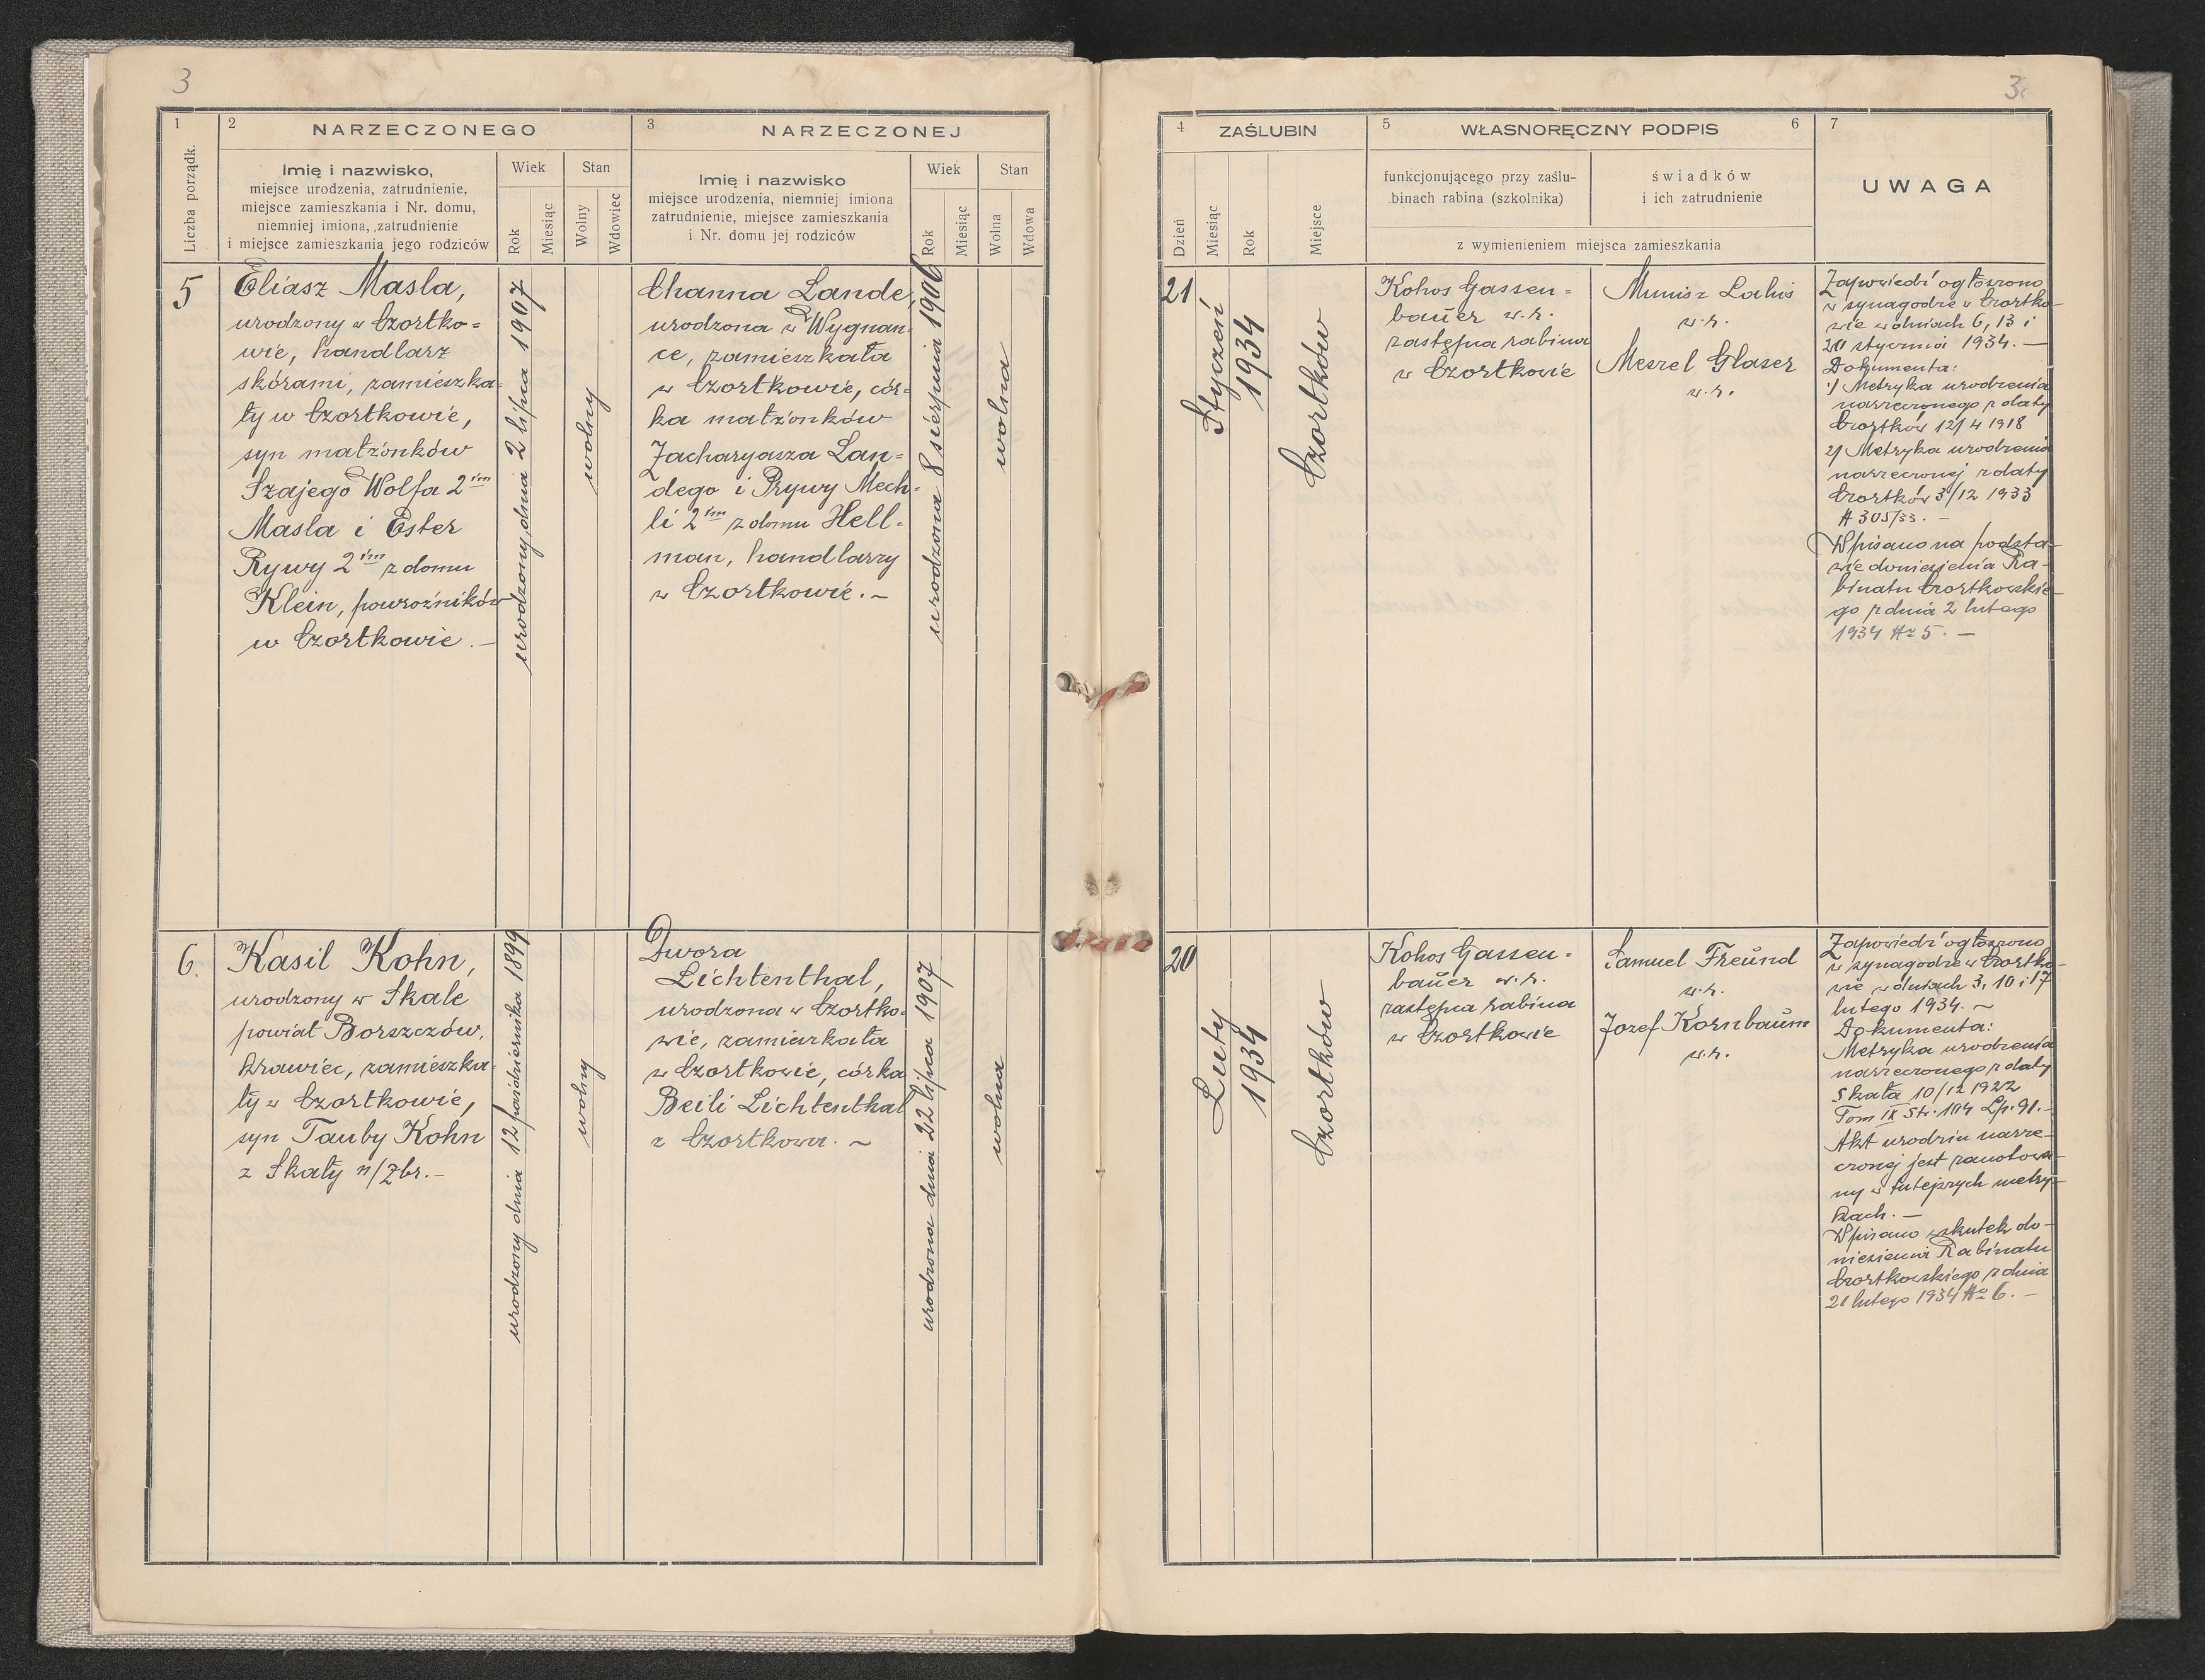 3
1
Liczba porządk.
2
NARZECZONEGO
Imię i nazwisko,
miejsce urodzenia, zatrudnienie,
miejsce zamieszkania i Nr. domu,
niemniej imiona, zatrudnienie
i miejsce zamieszkania jego rodziców
Wiek
Rok
Miesiąc
Stan
Wolny
Wdowiec
3
NARZECZONEJ
Imię i nazwisko
miejsce urodzenia, niemniej imiona
zatrudnienie, miejsce zamieszkania
i Nr. domu jej rodziców
Wiek
Rok
Miesiąc
Stan
Wolna
Wdowa
5
Eliasz Masla,
urodzony w Czortko=
wie, handlarz
skórami, zamieszka=
ły w Czortkowie,
syn małżonków
Szajego Wolfa 2im
Masla i Ester
Rywy 2im z domu
Klein, powroźników
w Czortkowie.—
urodzony dnia 2 lipca 1907
wolny
Channa Lande,
urodzona w Wygnan-
ce, zamieszkała
w Czortkowie, cór=
ka małżonków
Zacharyasza Lan=
dego i Prywy Mech=
li 2im z domu Hell=
man, handlarzy
w Czortkowie.—
urodzona 8 sierpnia 1906
wolna
6.
Kasil Kohn,
urodzony w Skale
powiat Borszczów,
krawiec, zamieszka=
ły w Czortkowie,
syn Tauby Kohn
z Skały n/Zbr.—
urodzony dnia 12 października 1899
wolny
Dwora
Lichtenthal,
urodzona w Czortko=
wie, zamiarkała
w Czortkowie, córka
Beili Lichtenthal
z Czortkowa. ~
urodzona dnia 22 lipca 1907
wolna
3
4
ZAŚLUBIN
Dzień
Miesiąc
Rok
Miejsce
5
WŁASNORĘCZNY PODPIS
6
funkcjonującego przy zaślu-
binach rabina (szkolnika)
świadków
i ich zatrudnienie
z wymienieniem miejsca zamieszkania
7
UWAGA
21
Styczeń
1934
Czortków
Kohos Gassen=
bauer w.r.
zastępca rabina
w Czortkowie
Munisz
w.r.
Meszel Glaser
w.r.
Zapowiedź ogłoszono
w synagodze w Czortko-
wie w dniach 6, 13 i
20 stycznia 1934.—
Dokumenta:
1) Metryka urodzenia
narzeczonego z daty
Czortków 12/4 1918
2) Metryka urodzenia
narzeczonej z daty
Czortków 3/12 1933
№ 305/33.—
Wpisano na podsta-
wie doniesienia Ra-
binatu Czortkowskie-
go z dnia 2 lutego
1934 № 5.—
20
Luty
1934
Czortków
Kohos Gassen=
bauer w.r.
zastępca rabina
w Czortkowie
Samuel Freund
w.r.
Jozef Kornbaum
w.r.
Zapowiedź ogłoszono
w synagodze w Czortko-
wie w dniach 3, 10 i 17
lutego 1934. ~
Dokumenta:
Metryka urodzenia
narzeczonego z daty
Skała 10/12 1922
Tom IX Str. 104 Lp. 91.—
Akt urodzin narze-
czonej jest zanotowa-
ny w tutejszych metry-
kach.—
Wpisano wskutek do-
niesienia Rabinatu
Czortkowskiego z dnia
21 lutego 1934 № 6.—